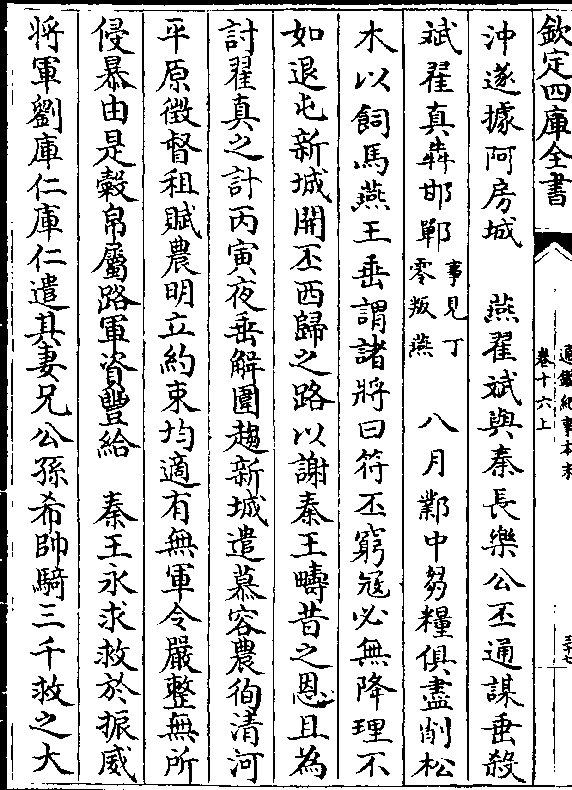 欽定四庫全書
通鑑紀事本末
卷十六上
三十七
沖遂據阿房城　燕翟斌與秦長樂公丕通謀垂殺
斌翟真犇邯鄲事見丁零叛燕　八月鄴中芻糧俱盡削松
木以飼馬燕王垂謂諸將曰符丕窮寇必無降理不
如退屯新城開丕西歸之路以謝秦王疇昔之恩且為
討翟真之計丙寅夜垂解圍趨新城遣慕容農徇清河
平原徵督租賦農明立約束均適有無軍令嚴整無所
侵暴由是穀帛屬路軍資豐給　秦王永求救於振威
將軍劉庫仁庫仁遣其妻兄公孫希帥騎三千救之大